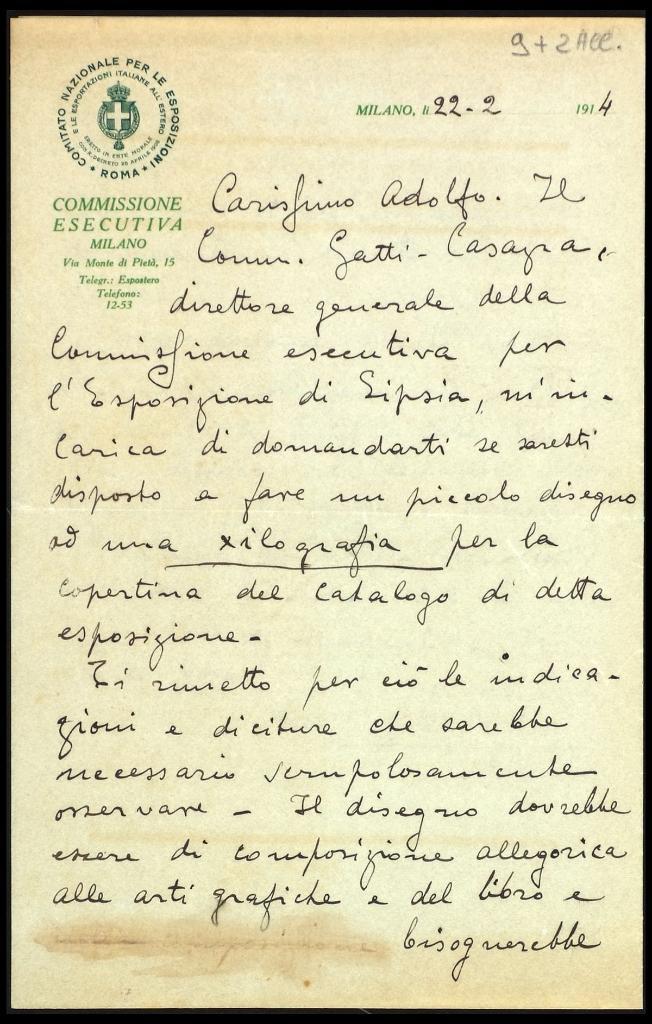 9 + 2 All.
COMITATO NAZIONALE PER LE ESPOSIZIONI
E LE ESPORTAZIONI ITALIANE ALL'ESTERO
ERETTO IN ENTE MORALE
ROMA
MILANO, li 22-2 1914
COMMISSIONE
ESECUTIVA
MILANO
Via Monte di Pietà, 15
Telegr.: Espostero
Telefono:
12-53
Carissimo Adolfo. Il
Comm. Gatti-Casazza,
direttore generale della
Commissione esecutiva per
l'Esposizione di Lipsia, m'in-
carica di domandarti se saresti
disposto a fare un piccolo disegno
od una xilografia per la
copertina del catalogo di detta
esposizione-
Ti rimetto per ciò le indica-
zioni e diciture che sarebbe
necessario scrupolosamente
osservare - Il disegno dovrebbe
essere di composizione allegorica
alle arti grafiche e del libro e
bisognerebbe